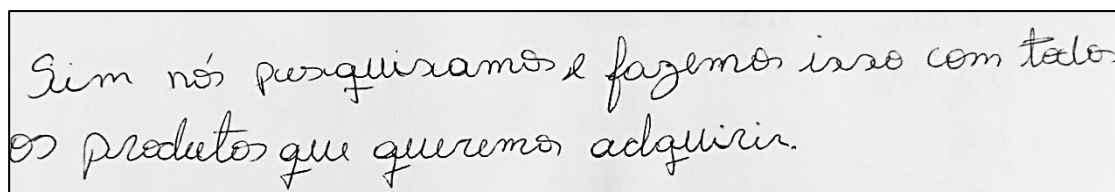 Sim nós pesquisamos e fazemos isso com todos
os produtos que queremos adquirir.